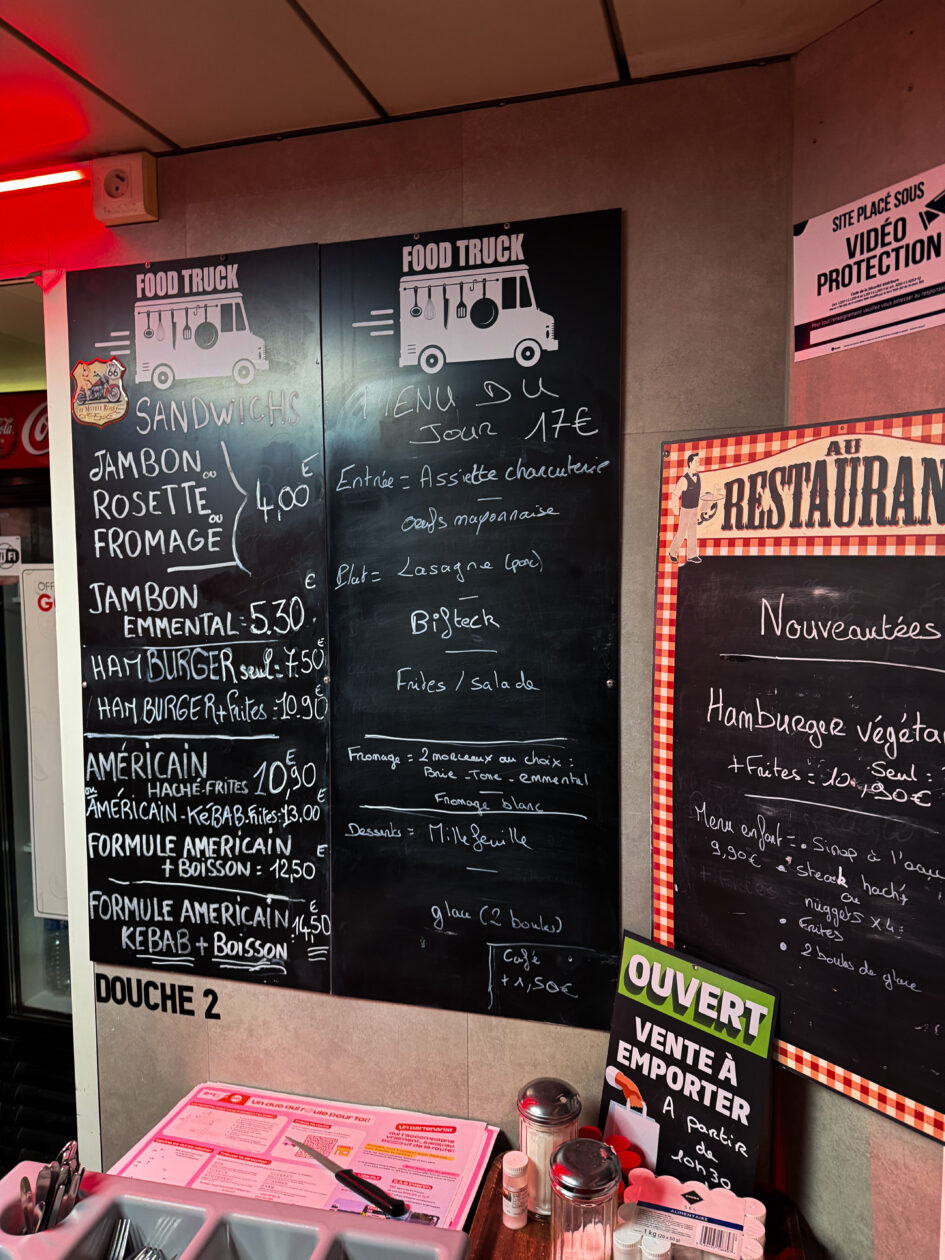 FOOD TRUCK
66
SANDWICHS
JAMBON ou
ROSETTE ou
FROMAGE
4,00 €
JAMBON
EMMENTAL = 5.30 €
HAMBURGER seul = 7.50 €
HAMBURGER + Frites = 10.90 €
AMÉRICAIN
HACHÉ-FRITES 10,90 €
ou
AMÉRICAIN-KéBAB.Frites = 13,00 €
FORMULE AMERICAIN
+ BOISSON = 12,50 €
FORMULE AMERICAIN
KEBAB + BOISSON 14,50 €
DOUCHE 2
FOOD TRUCK
MENU DU
JOUR 17€
Entrée = Assiette charcuterie
oeufs mayonnaise
Plat = Lasagne (porc)
Bifteck
Frites / salade
Fromage = 2 morceaux au choix :
Brie - Tome - emmental
Fromage blanc
Desserts = Millefeuille
glace (2 boules)
Café
+ 1,50€
SITE PLACÉ SOUS
VIDÉO
PROTECTION
Pour tout renseignement veuillez vous adresser au responsa
AU
RESTAURAN
Nouveautées
Hamburger végéta
Seul :
+ Frites = 10,90€
Menu enfant = • Sirop à l'eau
9,90€ • steak haché
ou
nuggets x 4
• Frites
• 2 boules de glace
OUVERT
VENTE À
EMPORTER
A partir
de
10h30
Un duo qui roule pour toi!
Un partenariat
SEL
ALIMENTAIRE
1 kg (20 x 50 g)